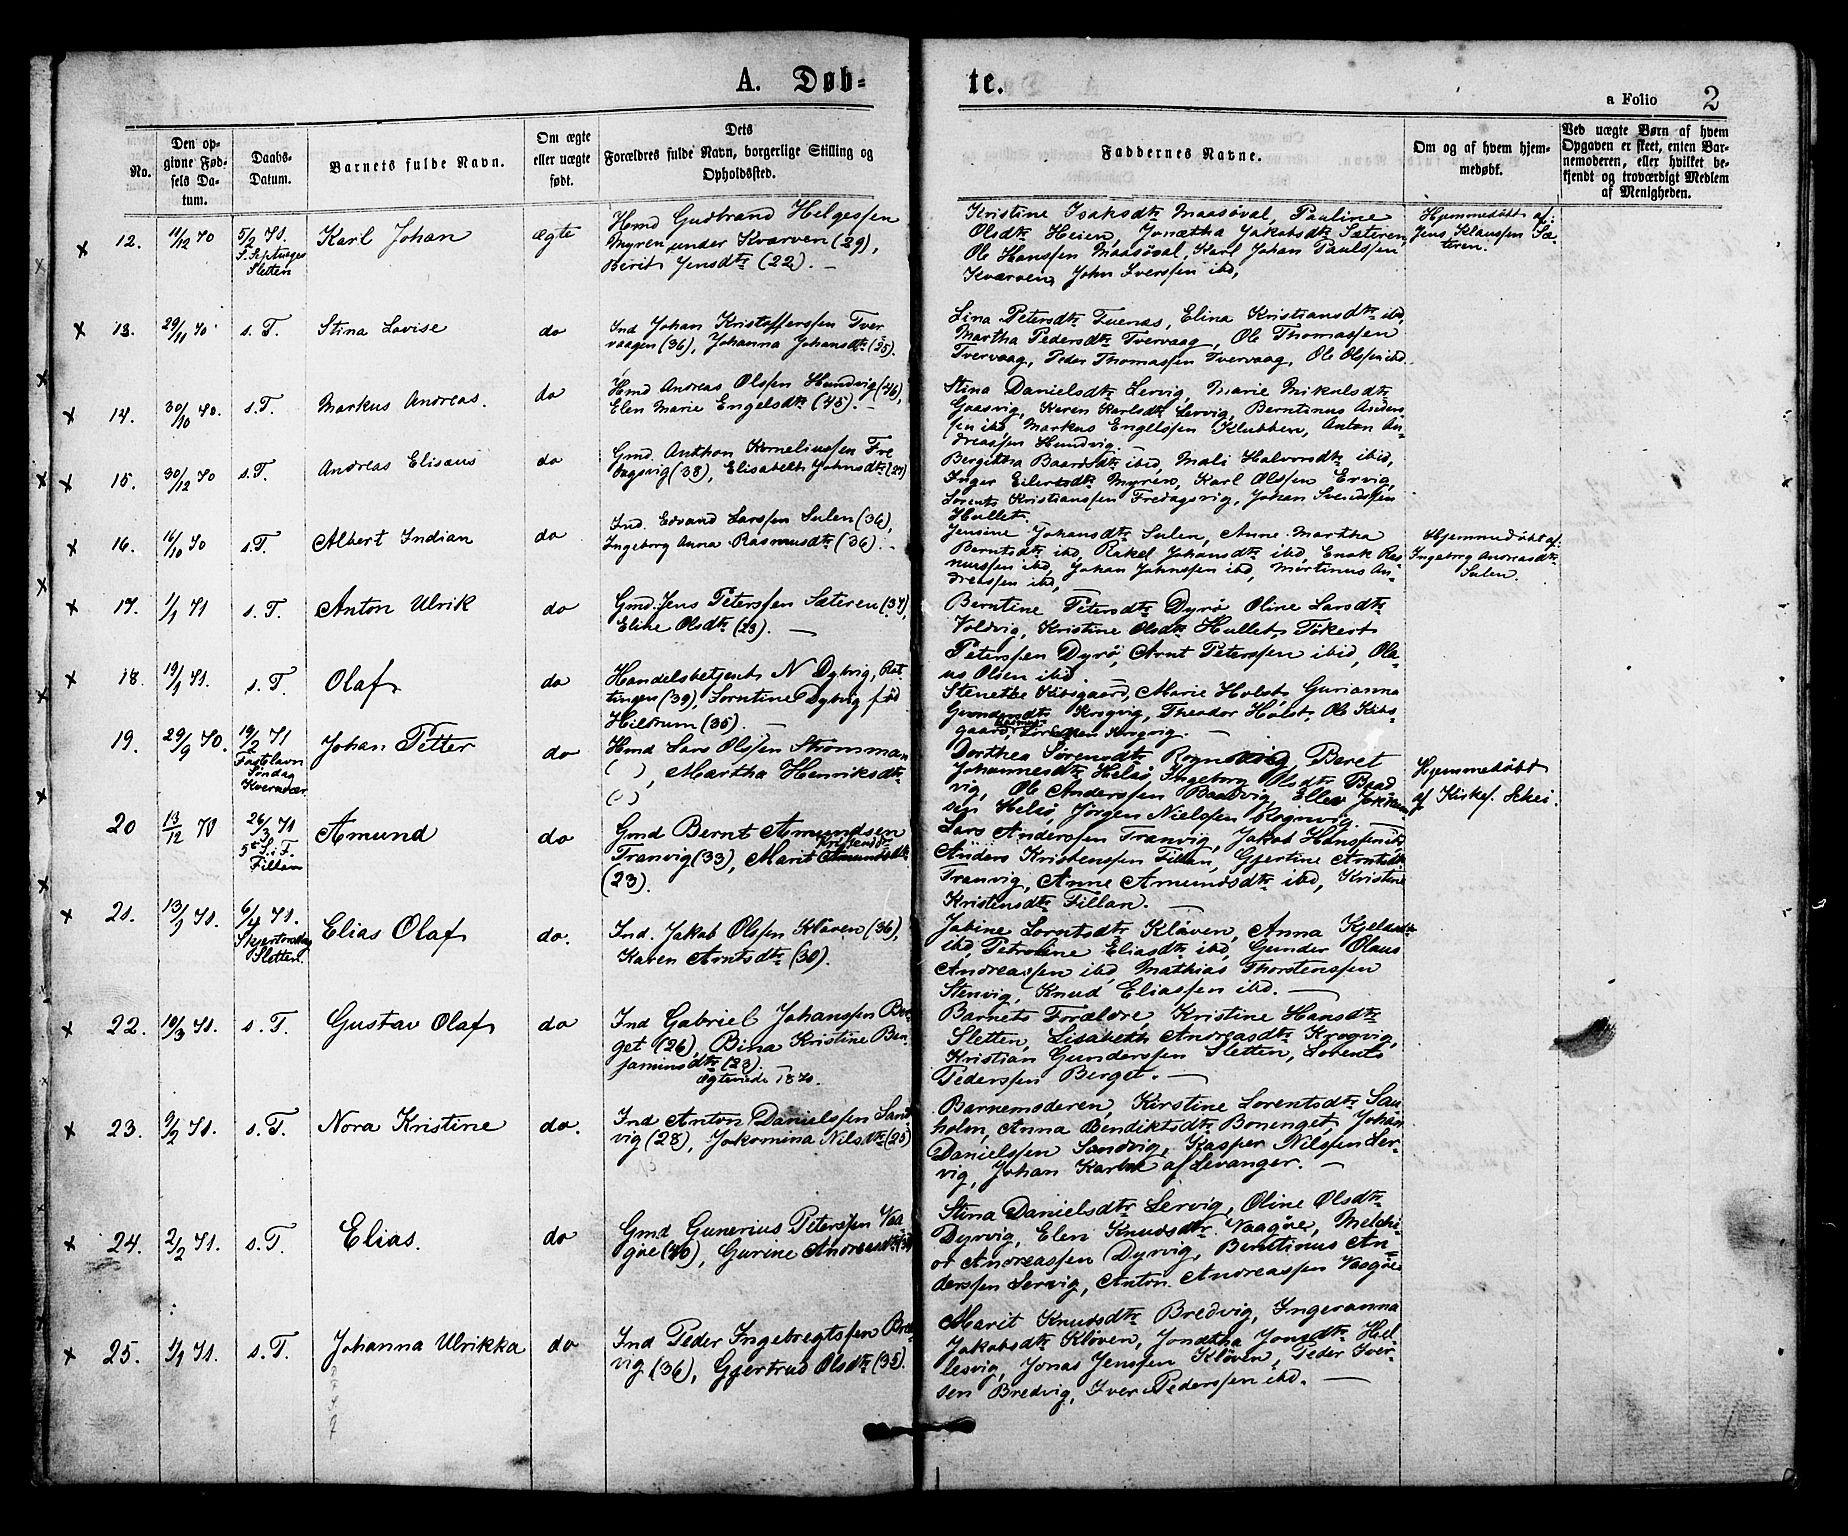 A. Døb-
te.
a Folio 2
No.
Den op-
givne Fød-
sels Da-
tum.
Daabs-
Datum.
Barnets fulde Navn.
Om ægte
eller uægte
født.
Dets
Forældres fulde Navn, borgerlige Stilling og
Opholdssted.
Faddernes Navne.
Om og af hvem hjem-
medøbt.
Ved uægte Børn af hvem
Opgaven er skeet, enten Bar-
nemoderen, eller hvilket be-
kjendt og troværdigt Medlem
af Menigheden.
12. 11/12 70 5/2 71. Karl Johan ægte
Sletten
Hmd Gudbrand Helgessen
Myren under Kværven (29),
Berit Jensdtr (22). —
Kristine Isaksdtr Maasøval, Pauline
Olsdtr Heien, Jonætha Jakobsdtr Sæteren,
Ole Hanssen Maasøval, Karl Johan Paulssen
Kværven, John Iverssen ibd,
Hjemmedøbt af:
Jens Klaussen Sæ-
teren.
13. 29/11 70 s. T. Stina Lovise do
Ind Johan Kristofferssen Tver
vaagen (36), Johanna Johansdtr (25).
Lina Petersdtr Fuenæs, Elina Kristiansdtr ibd,
Martha Pedersdtr Tvervaag, Ole Thomassen
Tvervaag, Peder Thomassen Tvervaag, Ole Olssen ibd
14. 30/10 70. s. T. Markus Andreas. do
Hmd Andreas Olssen Hundvig (46),
Elen Marie Engelsdtr (45). —
Stina Danielsdtr Lervig, Marie Mikalsdtr
Gaasvig, Karen Karlsdtr Lervig, Berntinus Anders-
sen ibd, Markus Engelssen Klubben, Anton An-
dreassen Hundvig. —
15. 30/12 70 s. T. Andreas Elisæus do
Gmd. Anthon Korneliussen Fre
dagsvig (38), Elisabeth Johnsdtr (27)
Bergitha Baardsdtr ibid, Mali Halvorsdtr ibid,
Inger Eilertsdtr Myren, Karl Olssen Ervig,
Lorents Kristianssen Fredagsvig, Johan Svendssen
Hullet.
16. 14/10 70 s. T. Albert Indian do
Ind. Edvard Larssen Sulen (36),
Ingeborg Anna Rasmusdtr (36). —
Jensine Johansdtr Sulen, Anne Martha
Berntsdtr ibd, Rakel Johansdtr ibd, Enok Ras-
mussen ibd, Johan Johnssen ibd, Martinus An-
dreassen ibd,
Hjemmedøbt af.
Ingeborg Andreasdtr
Sulen.
17. 1/1 71 s. T. Anton Ulrik do
Gmd. Jens Peterssen Sæteren (37),
Eline Olsdtr (23). —
Berntine Petersdtr Dyrø, Oline Larsdtr
Voldvig, Kristine Olsdtr Hullet, Tøkert
Peterssen Dyrø, Arnt Peterssen ibid, Ola-
us Olsen ibid.
18. 19/1 71. s. T. Olaf do
Handelsbetjent N Dybvig, Rat-
tingen (30), Sorntine Dybvig fød
Hildrum (35). —
Stenethe Kibsgaard, Marie Holst, Gurianna
Gundersdtr Krogvig, Theodor Holst, Ole Kibs-
gaard, Rasmus Krogvig. —
19. 29/9 70. 19/2 71 Johan Petter do
Fastelavn
Søndag
Kvernvær
Hmd Lars Olssen Strømman
( ), Martha Henriksdtr
( )
Dorthea Sørensdtr Rognsvig, Beret
Johannesdtr Helsø, Ingeborg Olsdtr Baad
vig, Ole Anderssen Baadvig, Ellev
sen Helsø, Jørgen Nielssen Rognvig. —
Hjemmedøbt
af Kirkes. Schei.
20 13/12 70 26/3 71 Amund do
5te S. i F.
Fillan
Gmd Bernt Amundsen
Tranvig (33), Marit Kristensdtr Amundsdtr
(23).
Lars Anderssen Tranvig, Jakob Hanssen ibd,
Anders Kristenssen Fillan, Gjertine Arntsdtr
Tranvig, Anne Amundsdtr ibd, Kristine
Kristensdtr Fillan. —
21. 13/3 71. 6/4 71. Elias Olaf do.
Skjertorsdag
Sletten.
Ind. Jakob Olssen Kløven (36),
Karen Arntsdtr (30).
Jakine Lorntsdtr Kløven, Anna Kjelsdtr
ibd, Petroline Eliasdtr ibd, Gunder Olaus
Andreassen ibd, Mathias Thorstenssen
Stenvig, Knud Eliassen ibd. —
22. 10/3 71. s. T. Gustav Olaf do
Ind Gabriel Johanssen Ber
get (26), Bina Kristine Ben-
jaminsdtr (23).
Ægteviede 1870.
Barnets Forældre, Kristine Hansdtr
Sletten, Lisabeth Andreasdtr Krogvig,
Kristian Gunderssen Sletten, Lorents
Pederssen Berget. —
23. 9/2 71. s. T. Nora Kristine do.
Ind Anton Danielssen Sand
vig (28), Jakomina Nilsdtr (25)
Barnemoderen, Kirstine Lorentsdtr Sau
holm, Anna Bendiktsdtr Bonenget, Johan
Danielssen Sandvig, Kasper Nilssen Ler-
vig, Johan Karlsæ af Levanger. —
24. 2/2 71. s. T. Elias. do
Gmd Gunerius Peterssen Vaa-
gøe (46), Gurine Andreasdtr
Stina Danielsdtr Lervig, Oline Olsdtr
Dyrvig, Elen Knudsdtr Vaagøe, Melchi-
or Andreassen Dyrvig, Berntinus An-
derssen Lervig, Anton Andreassen Vaagøe
25. 1/1 71. s. T. Johanna Ulrikka do
Ind Peder Ingebregtssen Bred
vig (36), Gjertrud Olsdtr (35).
Marit Knudsdtr Bredvig, Ingeranna
Jakobsdtr Kløven, Jonætha Jonsdtr Hel-
lesvig, Jonas Jenssen Kløven, Peder Iver-
sen Bredvig, Iver Pederssen ibd. —